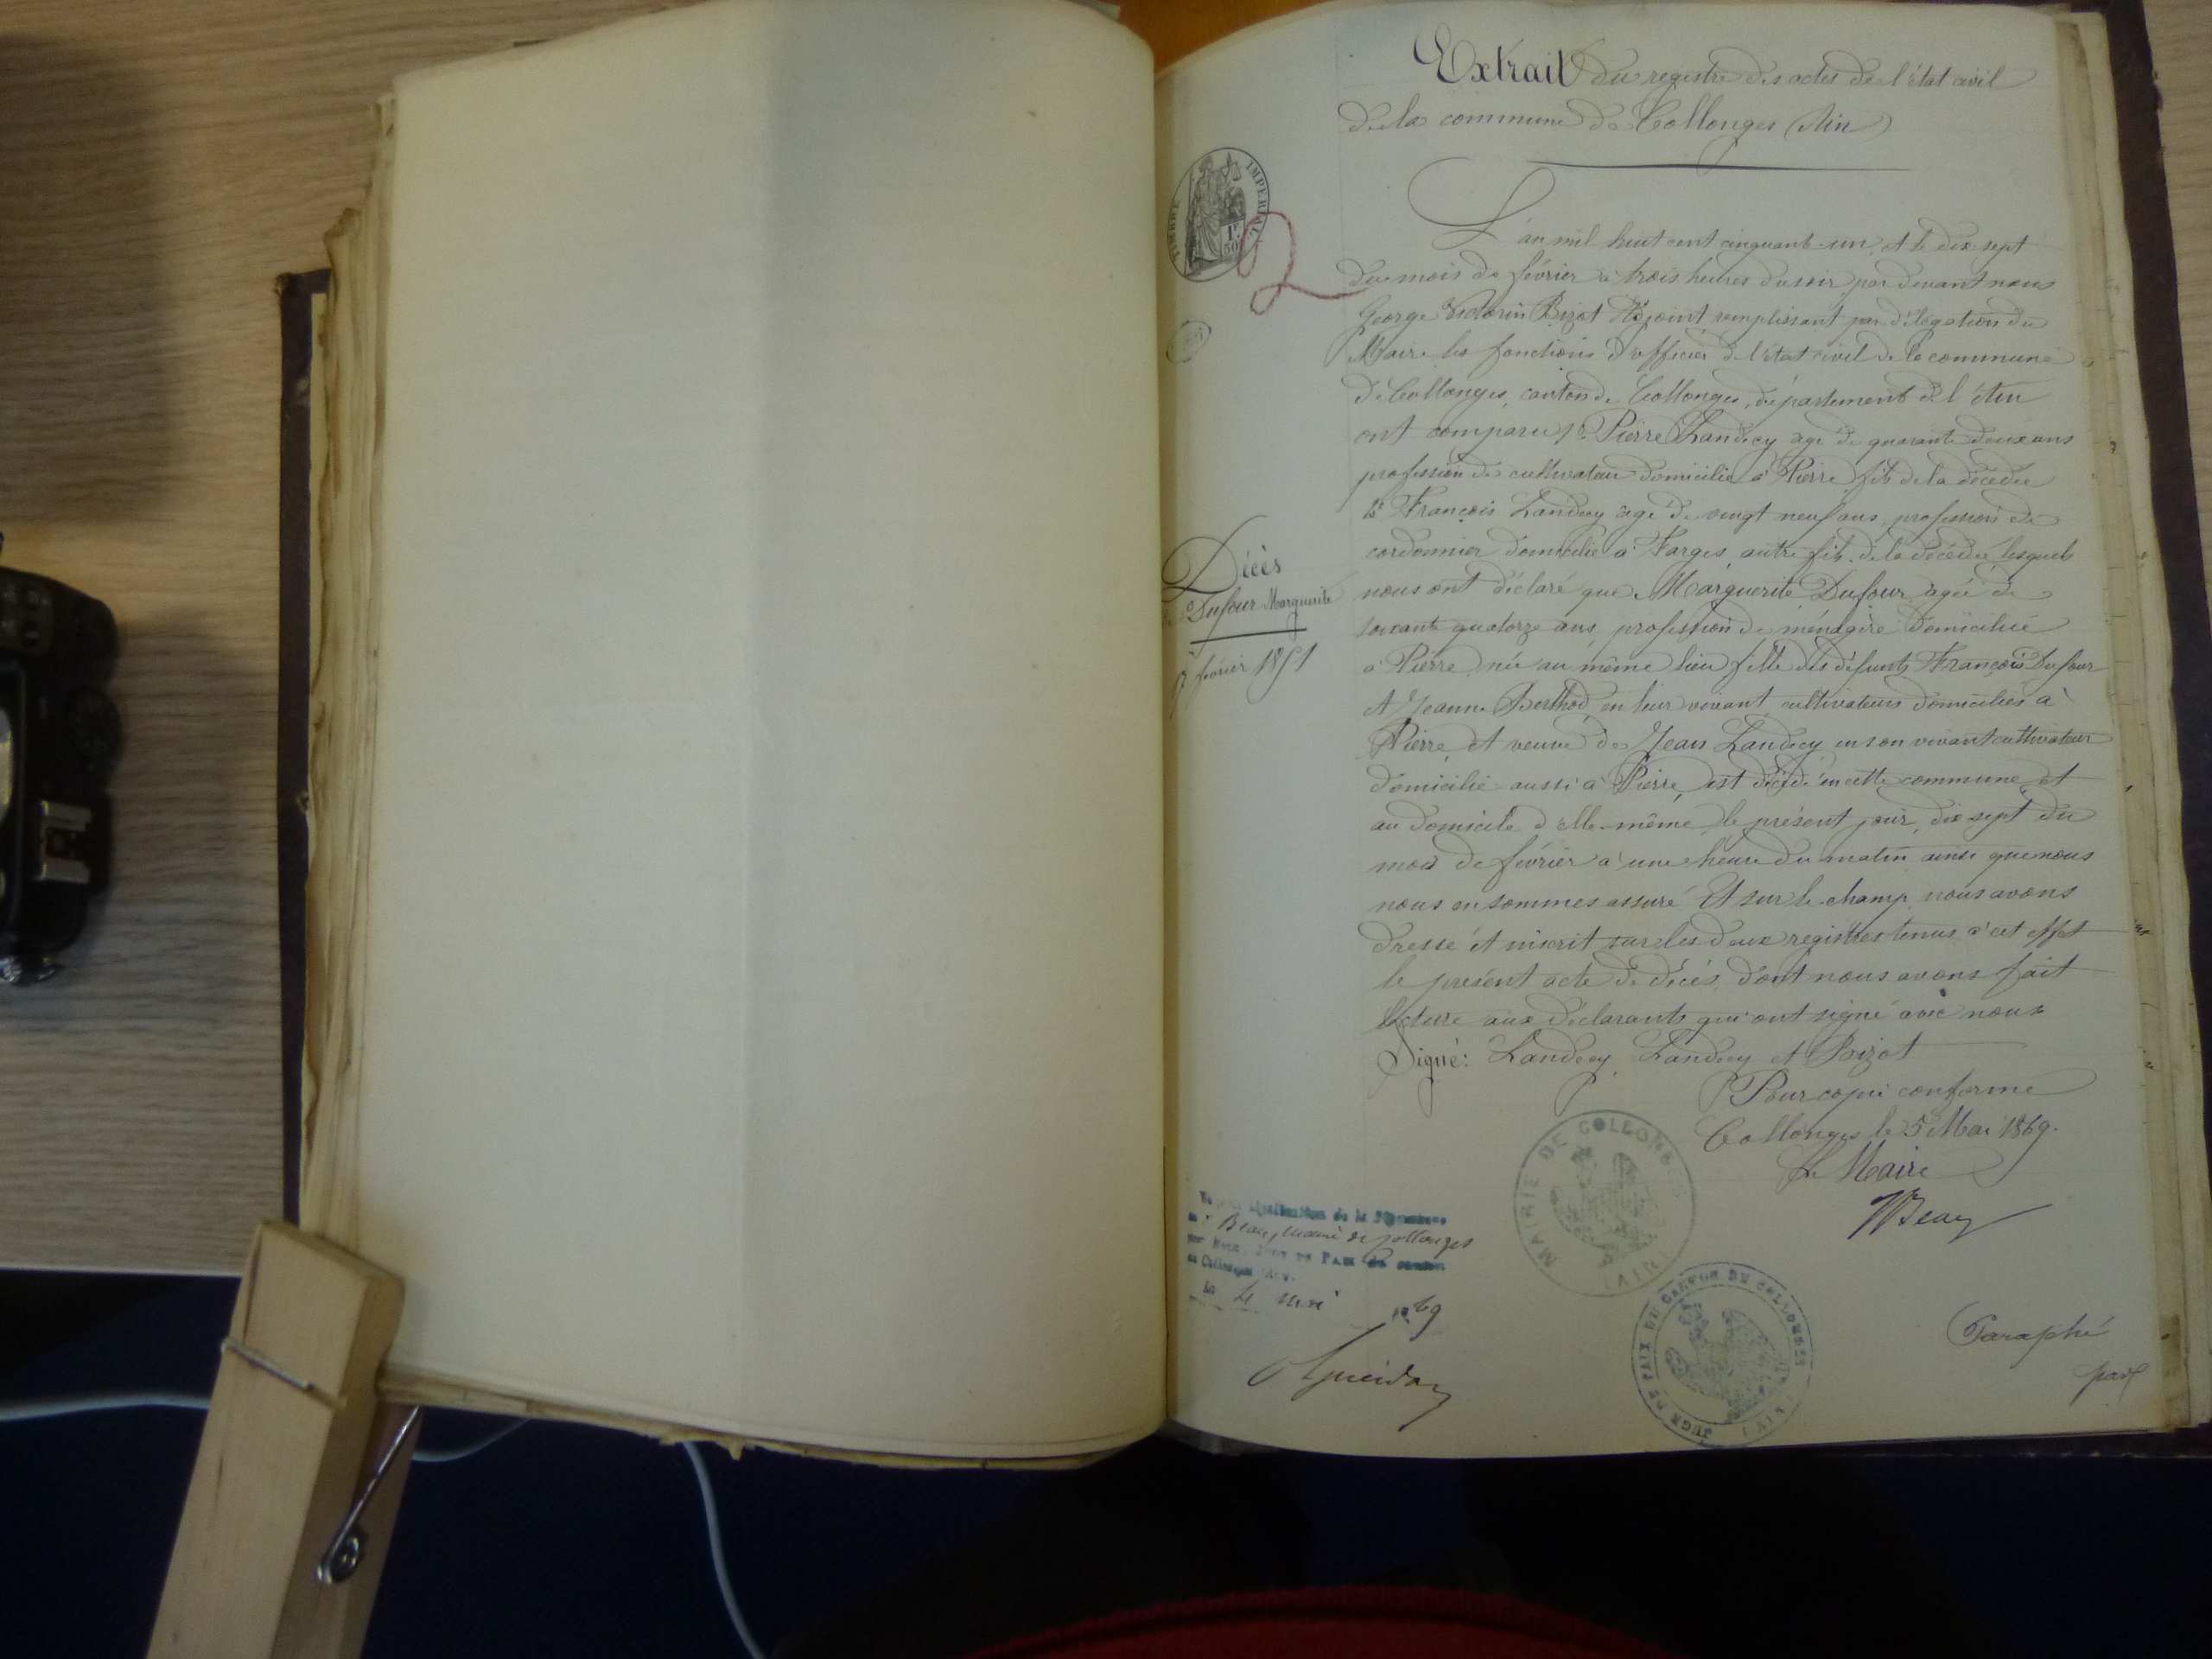 Extrait du registre des actes de l'état civil
de la commune de Collonges (Ain)
TIMBRE IMPERIAL
1F.
50
2
L'an mil huit cent cinquante-un et le dix-sept
du mois de février à trois heures du soir par devant nous
George Victorin Bizot Adjoint remplissant par délégation du
Maire les fonctions d'officier de l'état civil de la commune
de Collonges, canton de Collonges, département de l'Ain
ont comparu 1° Pierre Landecy âgé de quarante deux ans
profession de cultivateur domicilié à Pierre fils de la décédée
2° François Landecy âgé de vingt neuf ans, profession de
cordonnier domicilié à Farges, autre fils de la décédée lesquels
nous ont déclaré que Marguerite Dufour âgée de
soixante quatorze ans, profession de ménagère domiciliée
à Pierre née au même lieu fille des défunts François Dufour
et Jeanne Berthod en leur vivant cultivateurs domiciliés à
Pierre, et veuve de Jean Landecy en son vivant cultivateur
domicilié aussi à Pierre, est décédé en cette commune et
au domicile d'elle-même le présent jour, dix sept du
mois de février à une heure du matin ainsi que nous
nous en sommes assuré Et sur le champ nous avons
dressé et inscrit sur les deux registres tenus à cet effet
le présent acte de décès dont nous avons fait
lecture aux déclarants qui ont signé avec nous
Signé: Landecy, Landecy et Bizot
Décès
de Dufour Marguerite
17 février 1851
Pour copie conforme
Collonges le 5 Mai 1869.
Le Maire
MAIRIE DE COLLONGES
(AIN)
de la Signature
Beau, maire de Collonges
JUGE DE PAIX du canton
de Collonges
le 4 mai 1869
JUGE DE PAIX DU CANTON DE COLLONGES
(AIN)
Paraphé
par